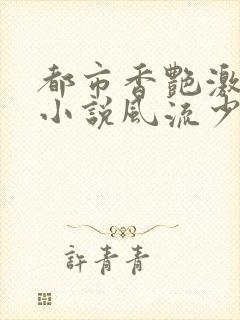 都市香艷激
小説風流少
許青青